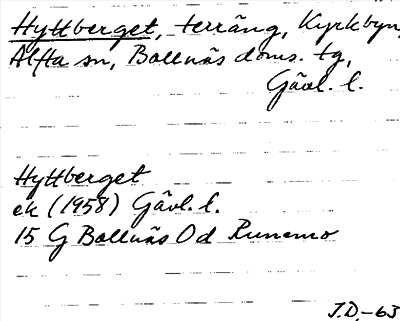 Hyttberget, terräng, Kyrkbyn,
Alfta sn, Bollnäs doms. tg,
Gävl. l.
Hyttberget
ek (1958) Gävl. l.
15 G Bollnäs Od Runemo
J.D.-63